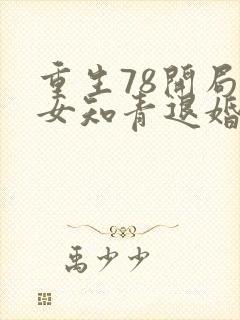 重生78開局
女知青退婚
禹少少